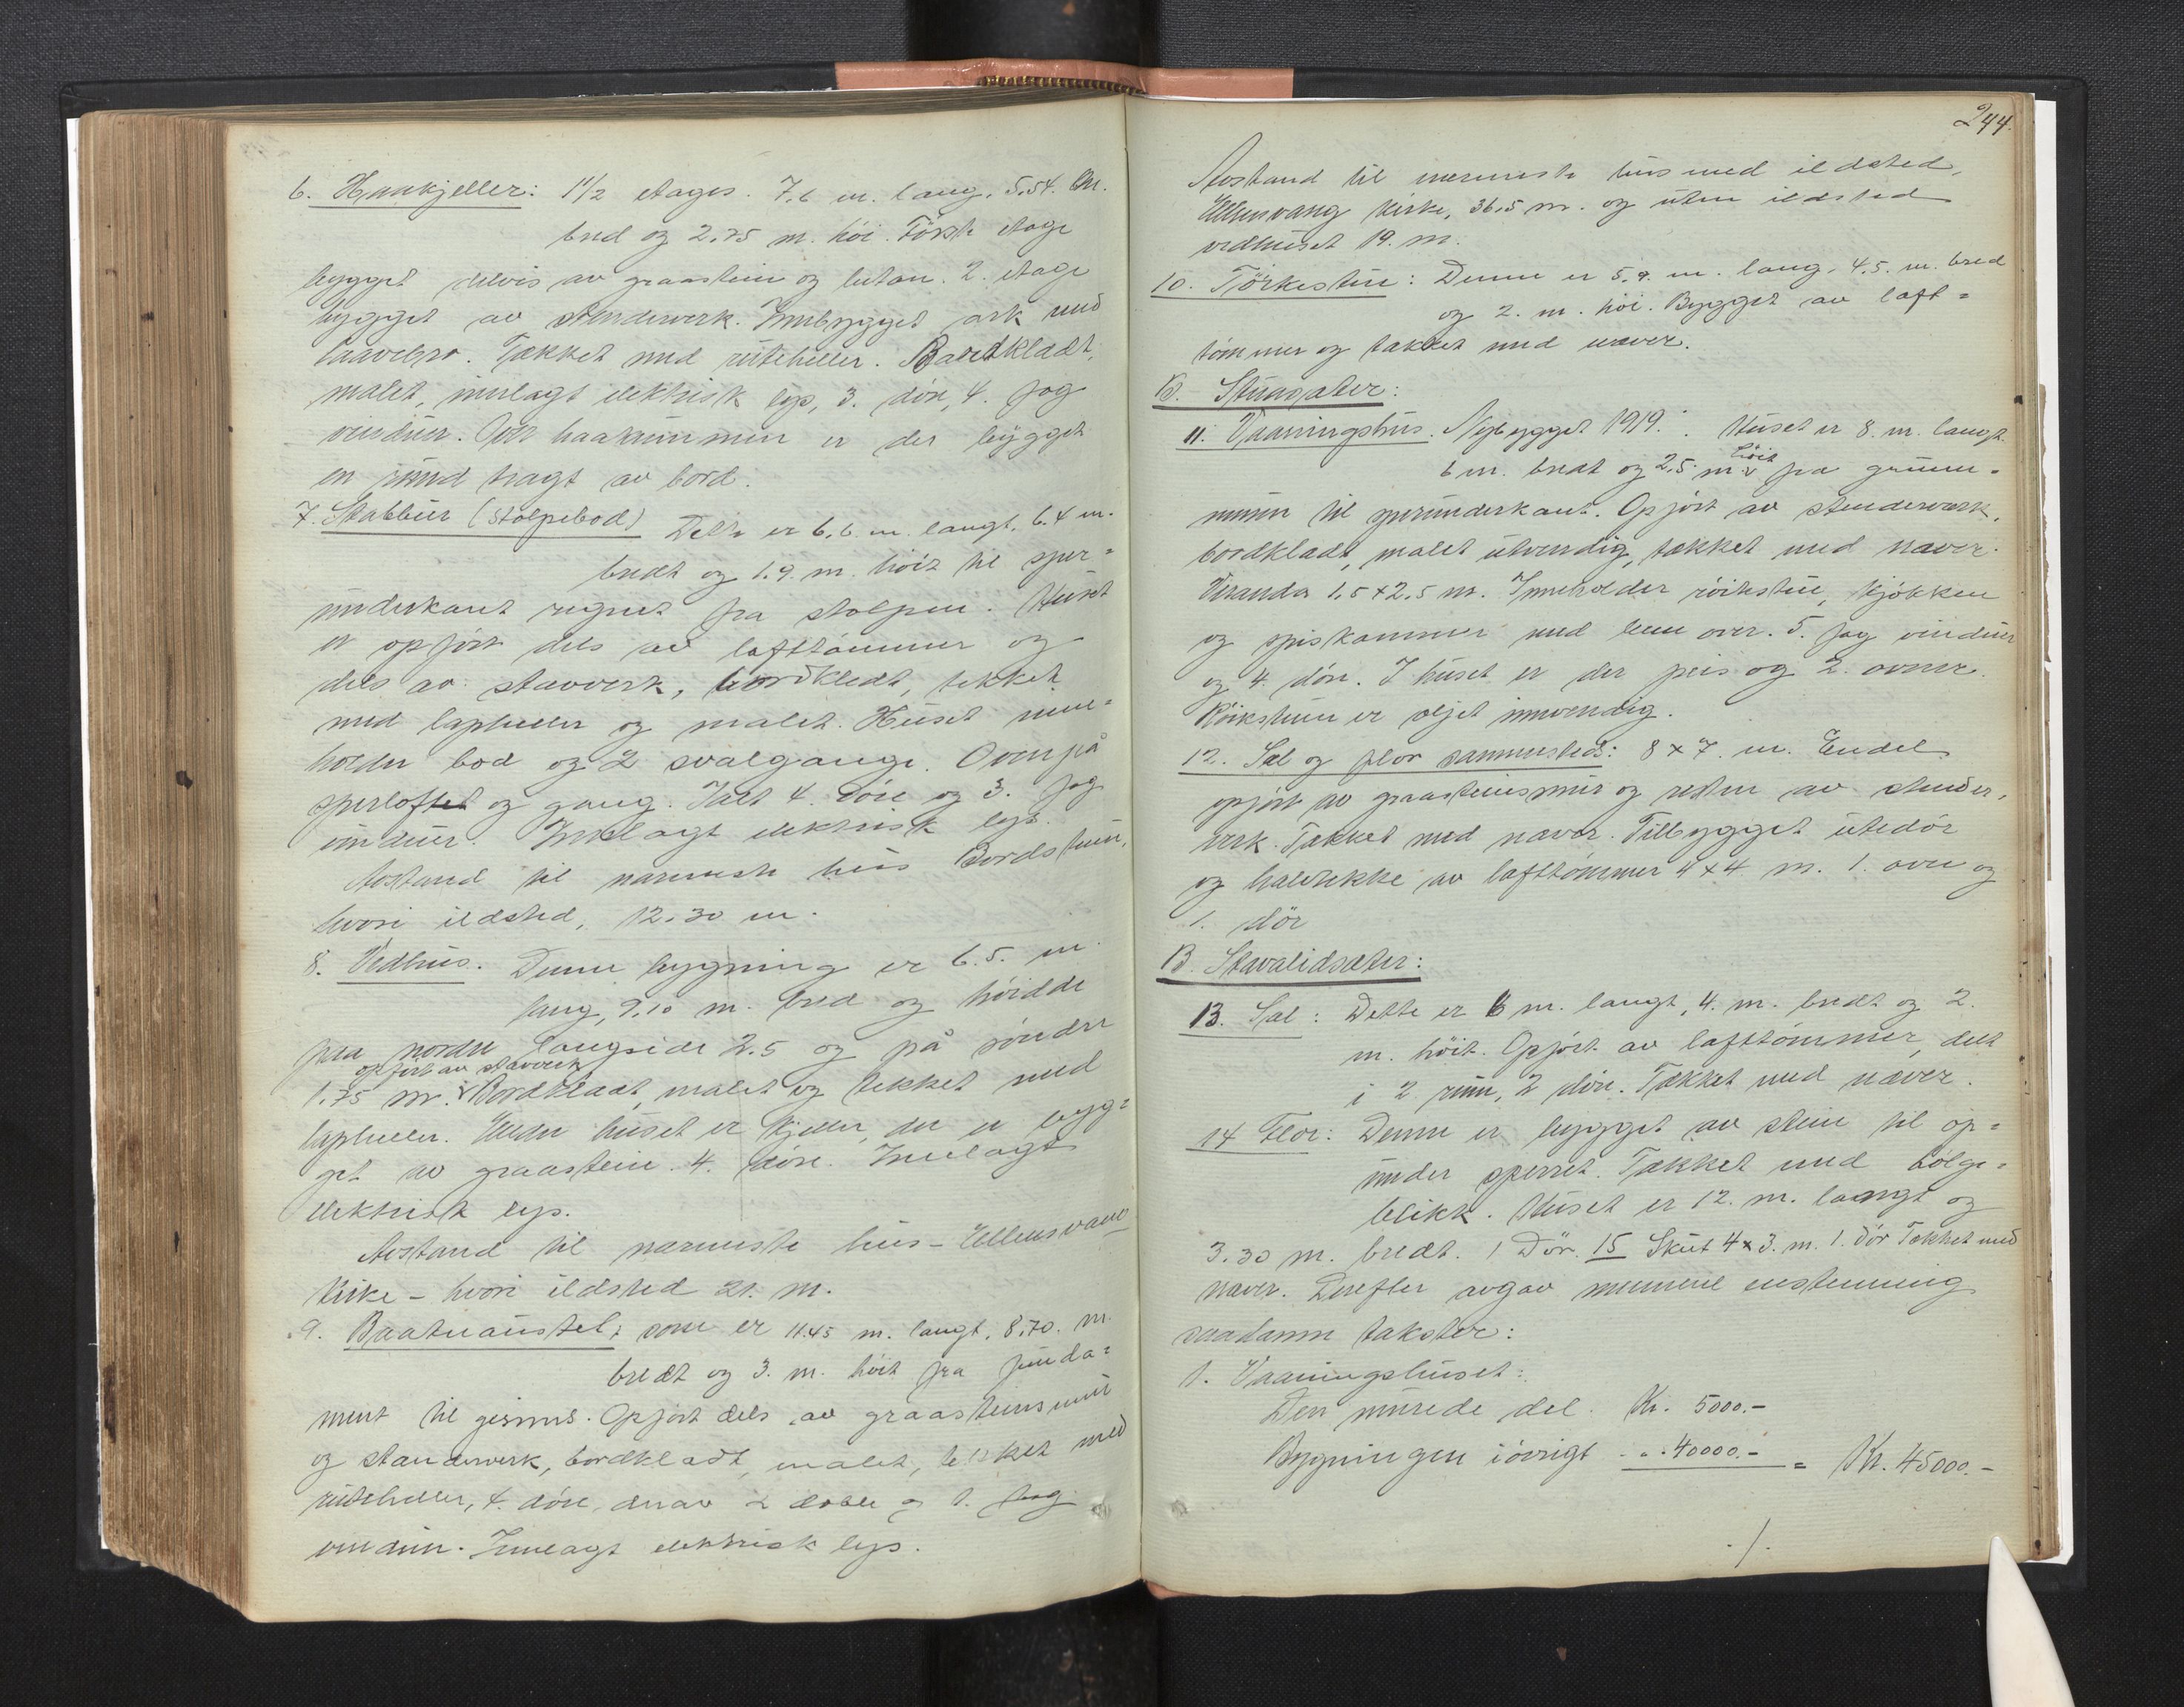 6. Haakjeller: 1 1/2 etages. 7.6 m. lang, 5.54. m.
bred og 2.75 m. höi. Förste etage
bygget delvis av graastein og betan. 2. etage
bygget av stenderverk. Innbygget ark med
laavebro. Tækket med ruteheller. Bordklædt,
malet, innlagt elektrisk lys, 3. döre, 4. fag
vinduer. Over haarummen er der bygget
en rund tragt av bord.
7. Stabbur (Stolpebod) Dette er 6.6. m. langt. 6.4 m.
bredt og 1.9. m. höit til sper=
underkant regnet fra stolpen. Huset
er opfört dels av lafttömmer og
dels av stavverk, bordkledt, tekket
med lapheller og malet. Huset inne=
holder bod og 2 svalgange. Ovenpå
sperloftet og gang. Ialt 4. döre og 3. fag
vinduer. Innlagt elektrisk lys.
Avstand til nærmeste hus Bordstuen,
hvori ildsted, 12.30 m.
8. Vedhus. Denne bygning er 6.5. m.
lang, 9.10 m. bred og höidde
paa nordre langside 2.5 og på söndre
opfört av stavverk
1.75 m. Bordklædt, malet og tekket med
lapheller. Under huset er kjeller, der er byg=
get av graastein. 4. döre. Innlagt
elektrisk lys.
Avstand til nærmeste hus - Ellensvang
kirke - hvori ildsted 21. m.
9. Baatnaustet; som er 11.45 m. langt, 8.70. m.
bredt og 3. m. höit fra funda=
ment til gesims. Opfört dels av graasteinsmur
og stenderverk, bordklædt, malet, tekket med
ruteheller, 4. döre, derav 2 doble og 1. fag
vinduer. Innlagt elektrisk lys.
244.
Avstand til nærmeste hus med ildsted,
Ellensvang kirke, 36.5 m. og uten ildsted
vedhuset 19. m.
10. Törkestue: Denne er 5.9. m. lang. 4.5. m. bred
og 2. m. höi. Bygget av laft=
tömmer og tækket med næver.
B. Stuesæter:
11. Vaaningshus. Nybygget 1919. Huset er 8. m. langt.
höit
6 m. bredt og 2.5. m. fra grunn=
muren til sperunderkant. Opfört av stenderverk,
bordklædt, malet utvendig, tækket med næver.
Veranda 1.5 x 2.5 m. Inneholder röikstue, kjökken
og spiskammer med lem over. 5. fag vinduer
og 4. döre. I huset er der peis og 2. ovner.
Röikstuen er oljet innvendig.
12. Sel og flor sammesteds: 8 x 7. m. Endel
opfört av graasteinsmur og resten av stender,
verk. Tækket med næver. Tilbygget utedör
og av lafttömmer 4 x 4 m. 1. ovn og
1. dör
B. Stavalidsæter:
13. Sel: Dette er 6 m. langt, 4. m. bredt og 2.
m. höit. Opfört av lafttömmer, delt
i 2 rum, 2 döre. Tækket med næver.
14 Flor: Denne er bygget av stein til op=
under sperret. Tækket med bölge=
blikk. Huset er 12. m. langt og
3.30 m. bredt. 1 Dör. 15 Skut 4 x 3. m. 1. dör Tekket med
næver. Derefter avgav mennene enstemmig
saadanne takster:
1. Vaaningshuset:
Den murede del. Kr. 5000.-
Bygningen iövrigt - " - 40000.- = Kr. 45000.-
./.